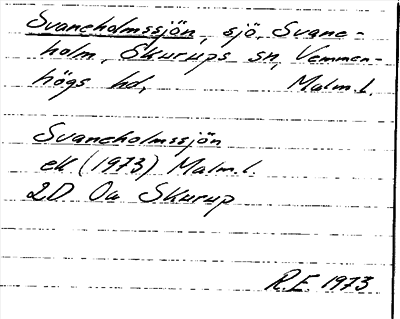 Svaneholmssjön, sjö, Svane-
holm, Skurups sn, Vemmen-
högs hd, Malm.l.
Svaneholmssjön
ek (1973) Malm.l.
2D 0a Skurup
R.E. 1973